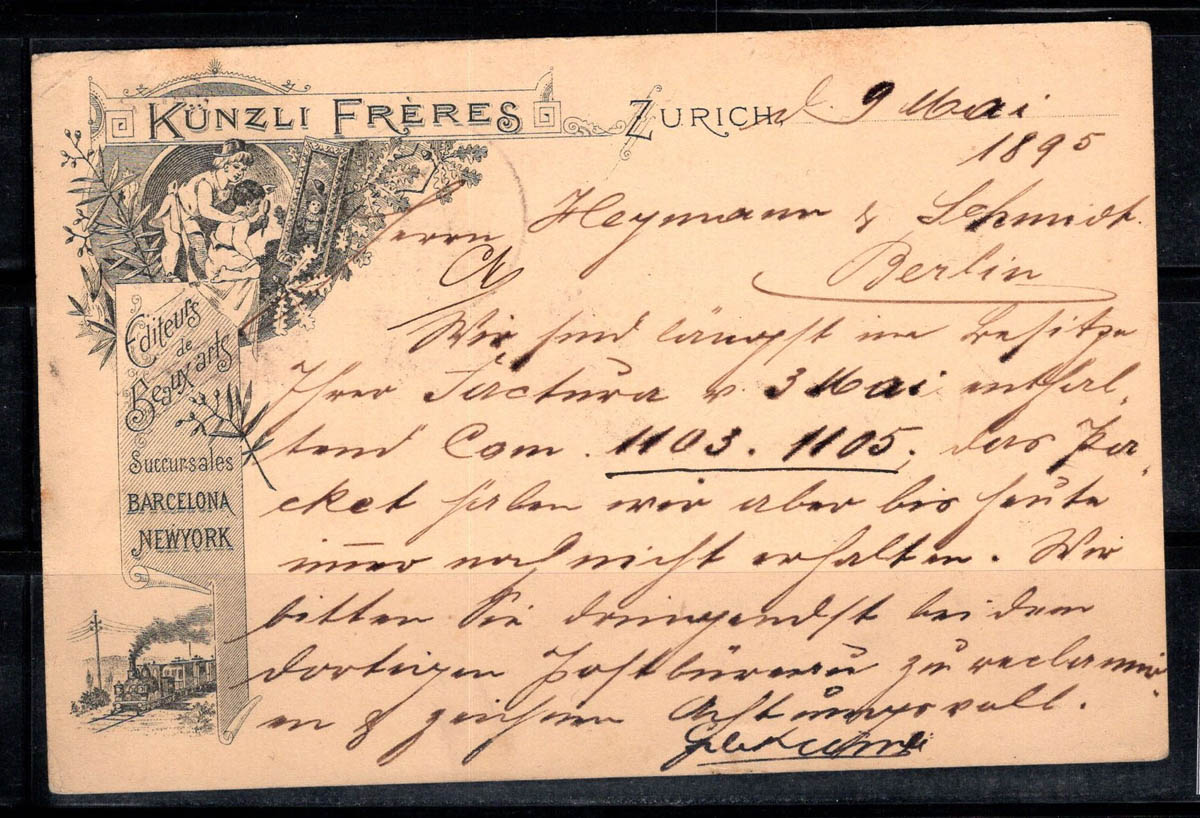 KÜNZLI FRÈRES
ZURICH, d. 9 Mai
1895
Editeurs
de
Beaux arts
Succursales
BARCELONA
NEWYORK
Herrn Heymann & Schmidt
Berlin
Wir sind längst im Besitze
Ihrer Factura v. 3 Mai enthal-
tend Com. 1103. 1105, das Pa-
cket haben wir aber bis heute
immer noch nicht erhalten. Wir
bitten Sie dringendst bei dem
dortigen Postbüreau zu reclamir-
en & zeichnen Achtungsvoll.